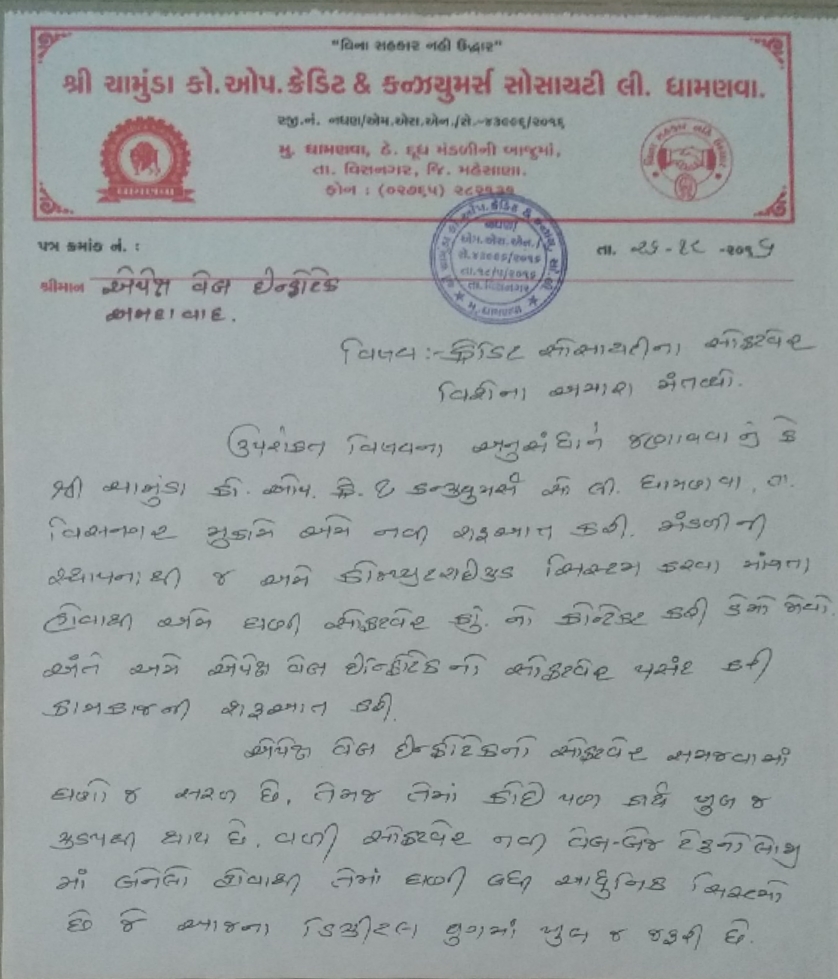 "વિના સહકાર નહી ઉદ્ધાર"
શ્રી ચામુંડા કો.ઓપ.ક્રેડિટ & કન્ઝયુમર્સ સોસાયટી લી. ધામણવા.
રજી.નં. નધણ/એમ.એસ.એન./સે.-૪૩૯૯૬/૨૦૧૬
મુ. ધામણવા, ઠે. દૂધ મંડળીની બાજુમાં,
તા. વિસનગર, જિ. મહેસાણા.
ફોન : (૦૨૭૬૫)
પત્ર ક્રમાંક નં. :
તા. ૨૬-૧૮-૨૦૧૬
શ્રીમાન એપેક્ષ વેબ ઈન્ફોટેક
અમદાવાદ.
વિષય :- ક્રેડિટ સોસાયટીના સોફ્ટવેર
વિશેના અમારા મંતવ્યો.
ઉપરોક્ત વિષયના અનુસંધાને જણાવવાનું કે
શ્રી ચામુંડા કો. ઓપ. ક્રે. & કન્ઝ્યુમર્સ સો લી. ધામણવા, તા.
વિસનગર મુકામે અમે નવી શરૂઆત કરી. મંડળીની
સ્થાપનાથી જ અમે કોમ્પ્યુટરાઈઝ્ડ સિસ્ટમ કરવા માંગતા
હોવાથી અમે ઘણી સોફ્ટવેર કું. નો કોન્ટેક્ટ કરી ડેમો જોયો.
અંતે અમે એપેક્ષ વેબ ઈન્ફોટેકનો સોફ્ટવેર પસંદ કરી
કામકાજની શરૂઆત કરી.
એપેક્ષ વેબ ઈન્ફોટેકનો સોફ્ટવેર સમજવામાં
ઘણો જ સરળ છે, તેમજ તેમાં કોઈ પણ કાર્ય ખુબ જ
ઝડપથી થાય છે. વળી સોફ્ટવેર નવી વેબ-બેજ ટેકનોલોજી
માં બનેલો હોવાથી તેમાં ઘણી બધી આધુનિક સિસ્ટમો
છે જે આજના ડિજીટલ યુગમાં ખુબ જ જરૂરી છે.